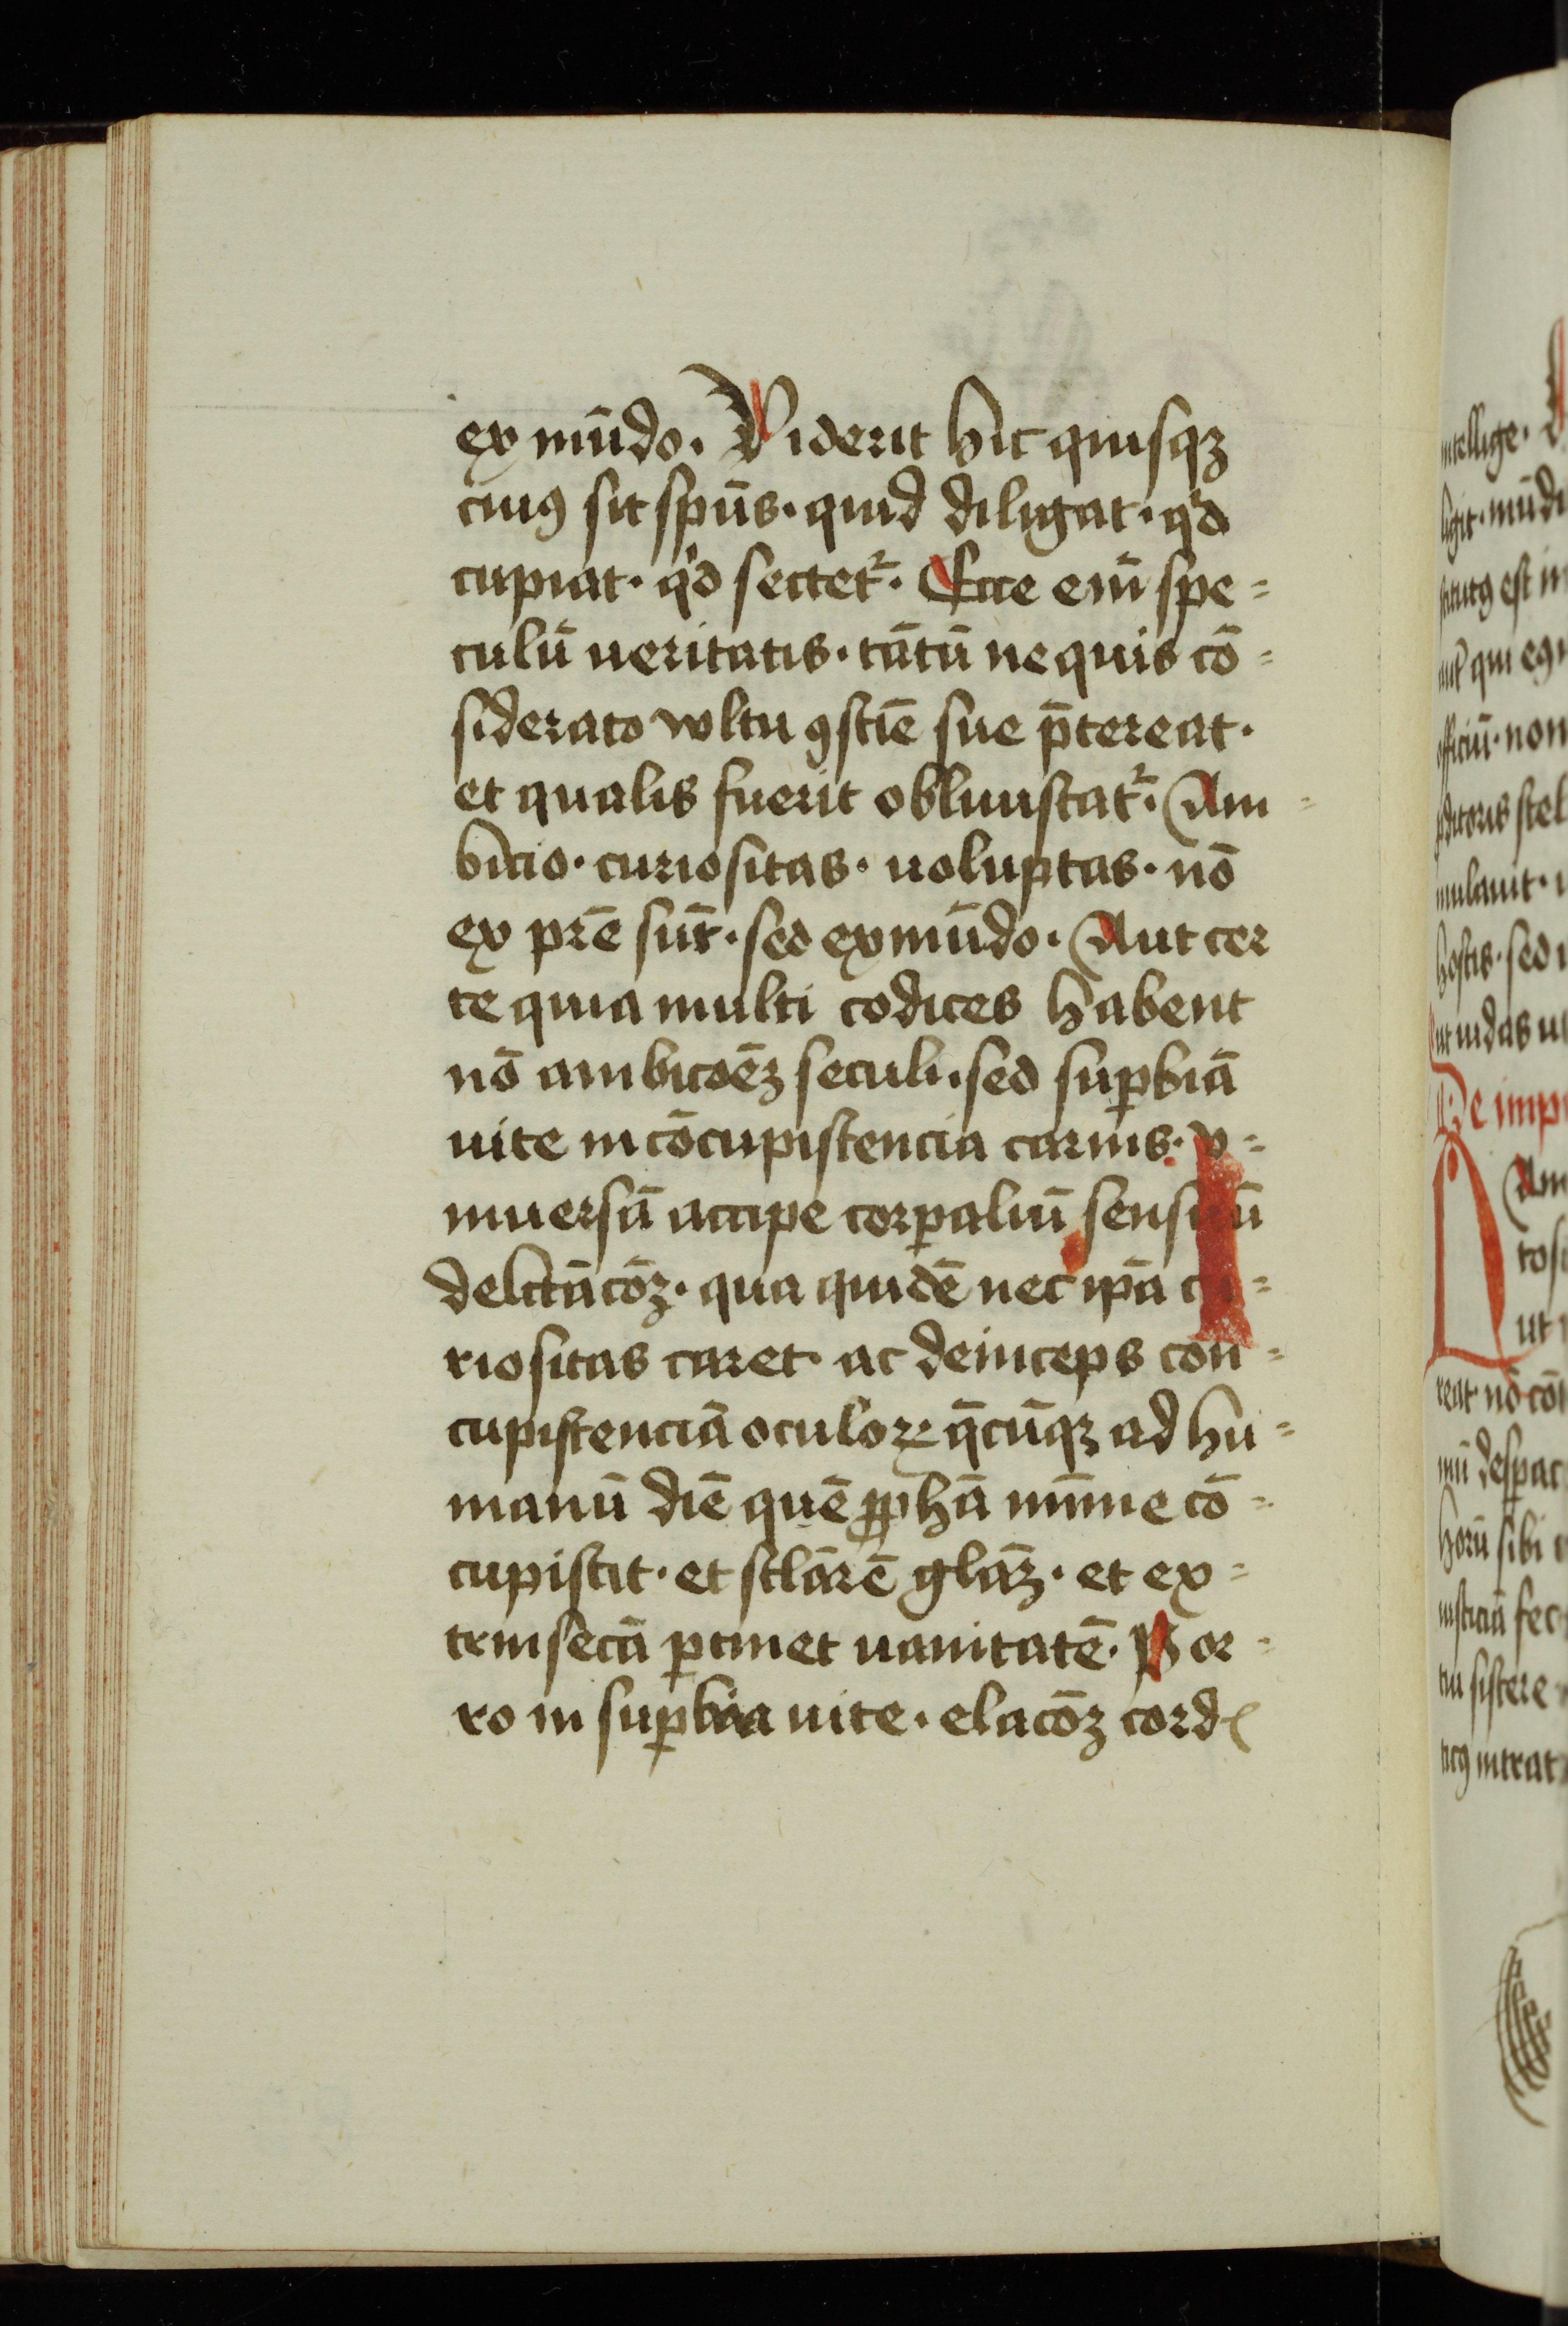 ex mūdo. Viderit hic quisqꝫ
cuiꝰ sit spūs. quid diligat. qͥd
cupiat. qͥd sectetᷣ. Ecce eī spe=
culū ueritatis. tātū ne quis cō=
siderato wltu ꝯsciē sue p̄tereat.
et qualis fuerit obliuiscatᷣ. Am=
bicio. curiositas. uoluptas. nō
ex prē sūt. sed ex mūdo. Aut cer
te quia multi codices habent
nō ambicōeꝫ seculi. sed suꝑbiā
uite in cōcupiscencia carnis. v=
niuersā accipe corꝑaliū sensuū
delctācōꝫ. qua quidē nec ipā cu=
riositas caret. ac deinceps con=
cupiscenciā oculoꝝ q̄cūqꝫ ad hu=
manū diē quē ꝓpha minime cō=
cupiscit. et sclarē glaꝫ. et ex=
trinsecā ꝑtinet uanitatē. Por=
ro in suꝑbia uite. elacōꝫ cordꝭ
ntellige.
ligit. mūdi
est in
qui egi
officiū. non
stel
mulauit.
hostis. sed
ut iudas
De imp
Am
tosi
ut
reat. nō
mū desꝑat
horū sibi
iusticiā fec
sistere
intrat